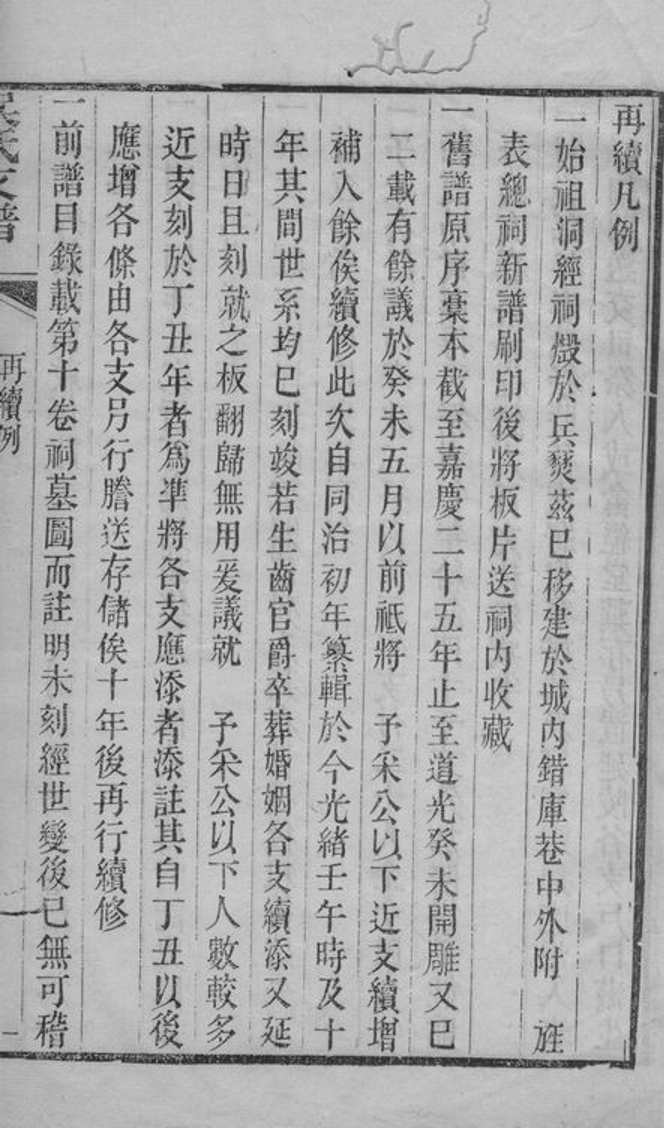 再續凡例
一始祖洞經祠燬於兵燹茲已移建於城內錯庫巷中外附　旌
表總祠新譜刷印後將板片送祠內收藏
一舊譜原序稾本截至嘉慶二十五年止至道光癸未開雕又已
二載有餘議於癸未五月以前祗將　予采公以下近支續增
補入餘俟續修此次自同治初年纂輯於今光緒壬午時及十
年其間世系均已刻竣若生齒官爵卒葬婚姻各支續添又延
時日且刻就之板翻歸無用爰議就　予采公以下人數較多
近支刻於丁丑年者爲準將各支應添者添註其自丁丑以後
應增各條由各支另行謄送存儲俟十年後再行續修
一前譜目錄載第十卷祠墓圖而註明未刻經世變後已無可稽
吳氏支譜
再續例
一